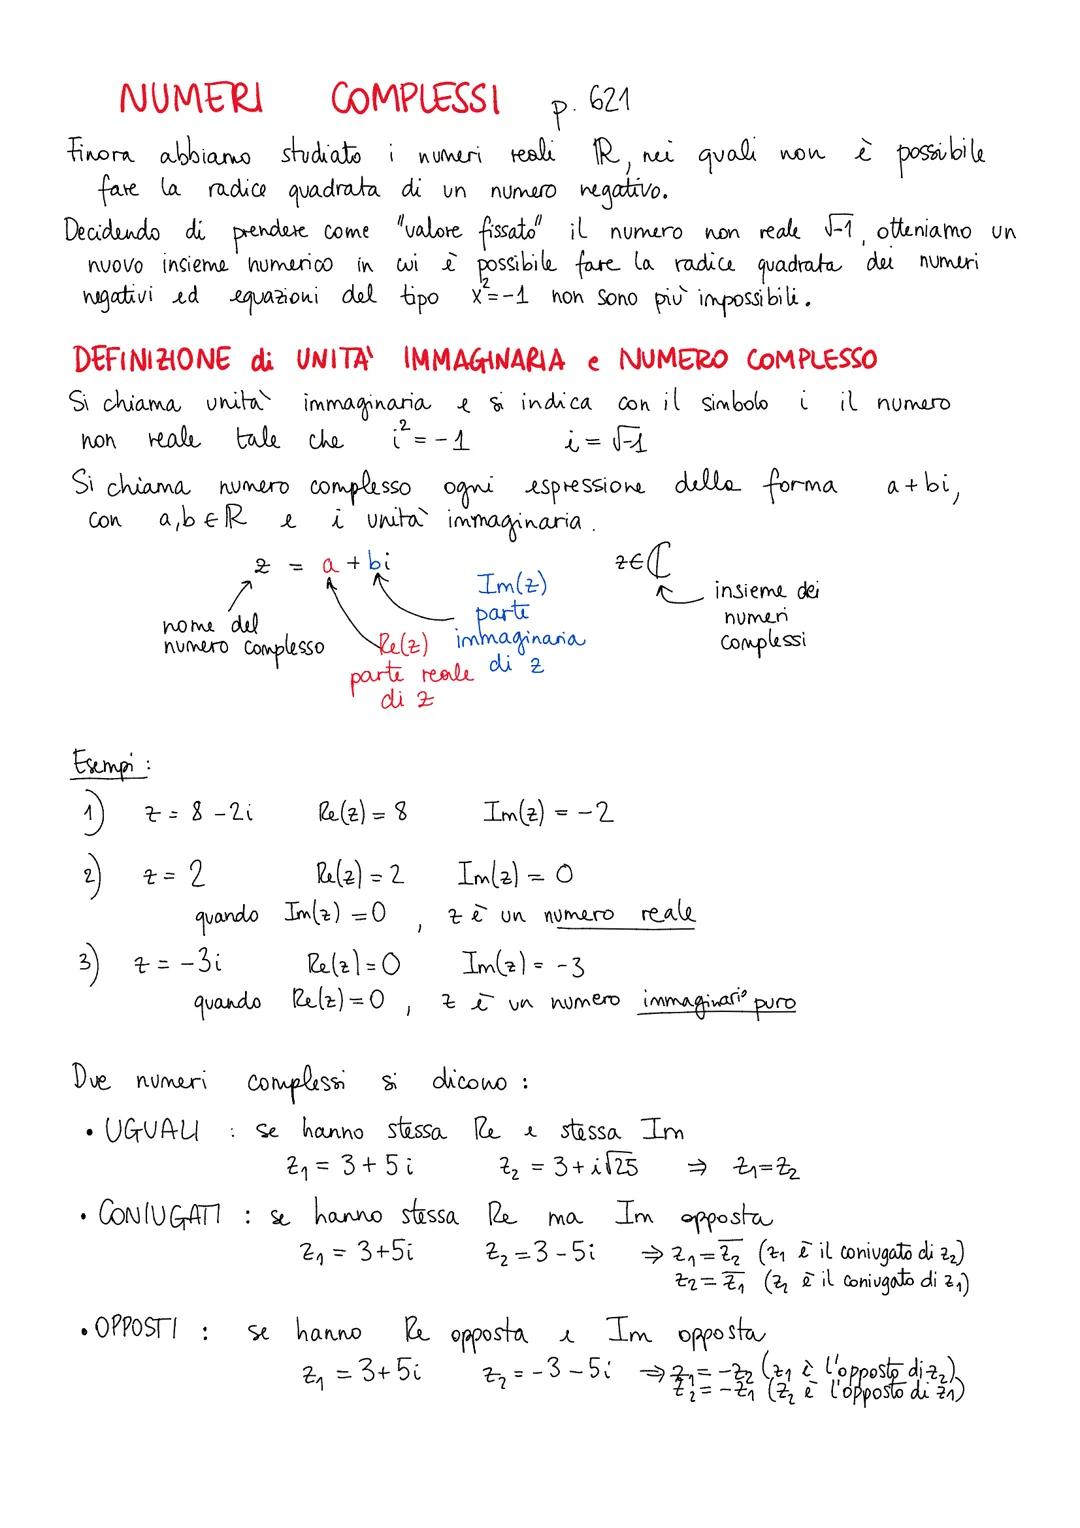 NUMERI COMPLESSI p. 621
Finora abbiamo studiato i numeri reali ℝ, nei quali non è possibile
fare la radice quadrata di un numero negativo.
Decidendo di prendere come "valore fissato" il numero non reale √-1, otteniamo un
nuovo insieme numerico in cui è possibile fare la radice quadrata dei numeri
negativi ed equazioni del tipo x²=-1 non sono più impossibili.
DEFINIZIONE di UNITA' IMMAGINARIA e NUMERO COMPLESSO
Si chiama unità immaginaria e si indica con il simbolo i il numero
non reale tale che i² = -1 i = √-1
Si chiama numero complesso ogni espressione della forma a + bi,
con a,b ∈ ℝ e i unità immaginaria.
z = a + bi z ∈ ℂ
nome del
numero complesso
Re(z)
parte reale
di z
Im(z)
parte
immaginaria
di z
insieme dei
numeri
complessi
Esempi :
1) z = 8 - 2i Re(z) = 8 Im(z) = -2
2) z = 2 Re(z) = 2 Im(z) = 0
quando Im(z) = 0 , z è un numero reale
3) z = -3i Re(z) = 0 Im(z) = -3
quando Re(z) = 0 , z è un numero immaginario puro
Due numeri complessi si dicono :
• UGUALI : se hanno stessa Re e stessa Im
z₁ = 3 + 5i z₂ = 3 + i√25 ⇒ z₁=z₂
• CONIUGATI : se hanno stessa Re ma Im opposta
z₁ = 3+5i z₂ = 3 - 5i ⇒ z₁ = z̅₂ (z₁ è il coniugato di z₂)
z₂ = z̅₁ (z₂ è il coniugato di z₁)
• OPPOSTI : se hanno Re opposta e Im opposta
z₁ = 3+5i z₂ = -3 - 5i ⇒ z₁ = -z₂ (z₁ è l'opposto di z₂)
z₂ = -z₁ (z₂ è l'opposto di z₁)